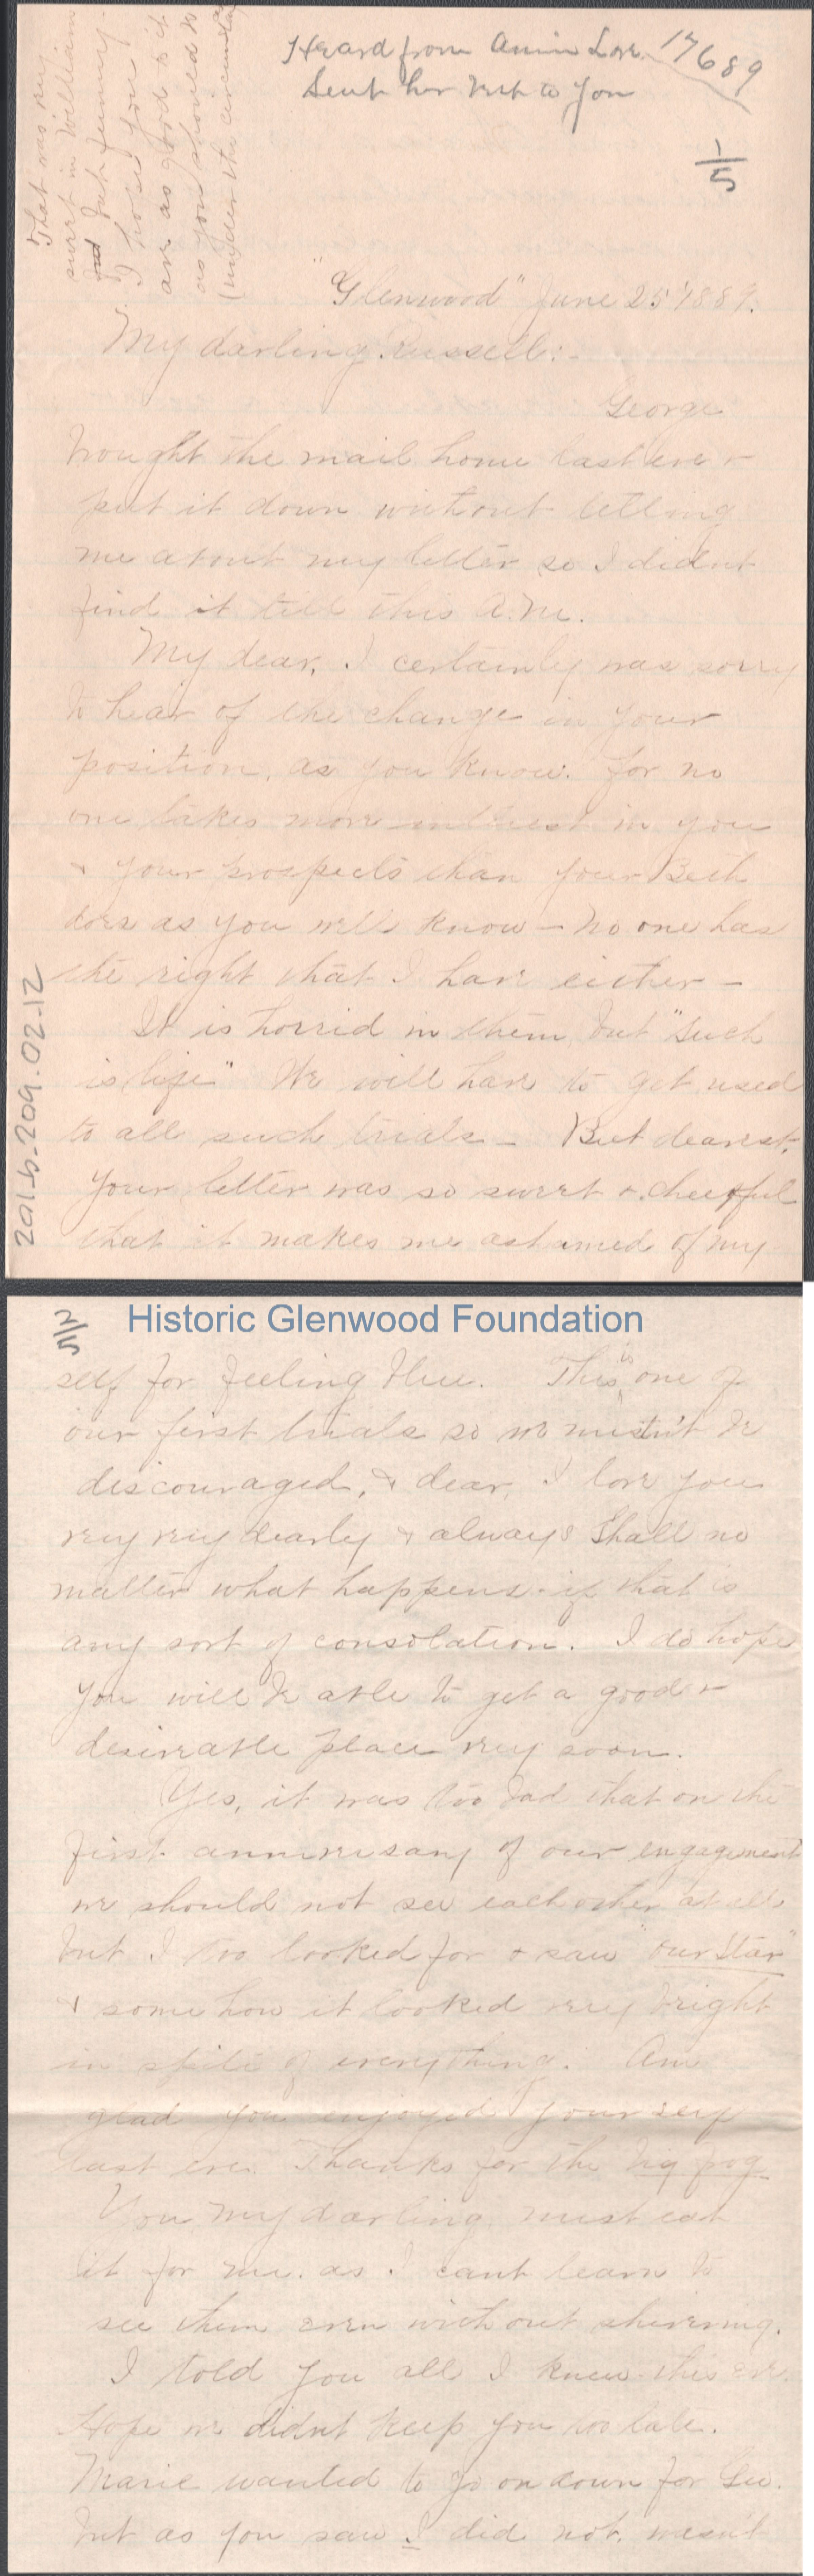 Heard from Annie Lou.
Sent her best to you
17689
1/5
That was my
sweet in William
but funny.
I hope you
are as good as if
as you should be
(under the circumstances
"Glenwood" June 25 1889.
My darling Russell:-
George
brought the mail home last eve &
put it down without telling
me about my letter so I didnt
find it till this A.M.
My dear, I certainly was sorry
to hear of the change in your
position, as you know. for no
one takes more interest in you
& your prospects than your Beth
does as you well know – no one has
the right that I have either –
It is horrid in them but "such
is life" We will have to get used
to all such trials – But dearest,
your letter was so sweet & cheerful
that it makes me ashamed of my-
201-b-209.02.12
2/5
Historic Glenwood Foundation
self for feeling blue. This is one of
our first trials so we mustn't be
discouraged, & dear, I love you
very very dearly & always shall no
matter what happens if that is
any sort of consolation. I do hope
you will be able to get a good &
desireable place very soon.
Yes, it was too bad that on the
first anniversary of our engagement
we should not see each other at all
but I too looked for & saw "our Star"
& some how it looked very bright
in spite of everything. Am
glad you enjoyed your self
last eve. Thanks for the big frog
You my darling, must eat
it for me. as I cant learn to
see them even without shivering.
I told you all I knew this eve.
Hope we didnt keep you too late.
Marie wanted to go on down for Geo.
but as you saw I did not. wasn't